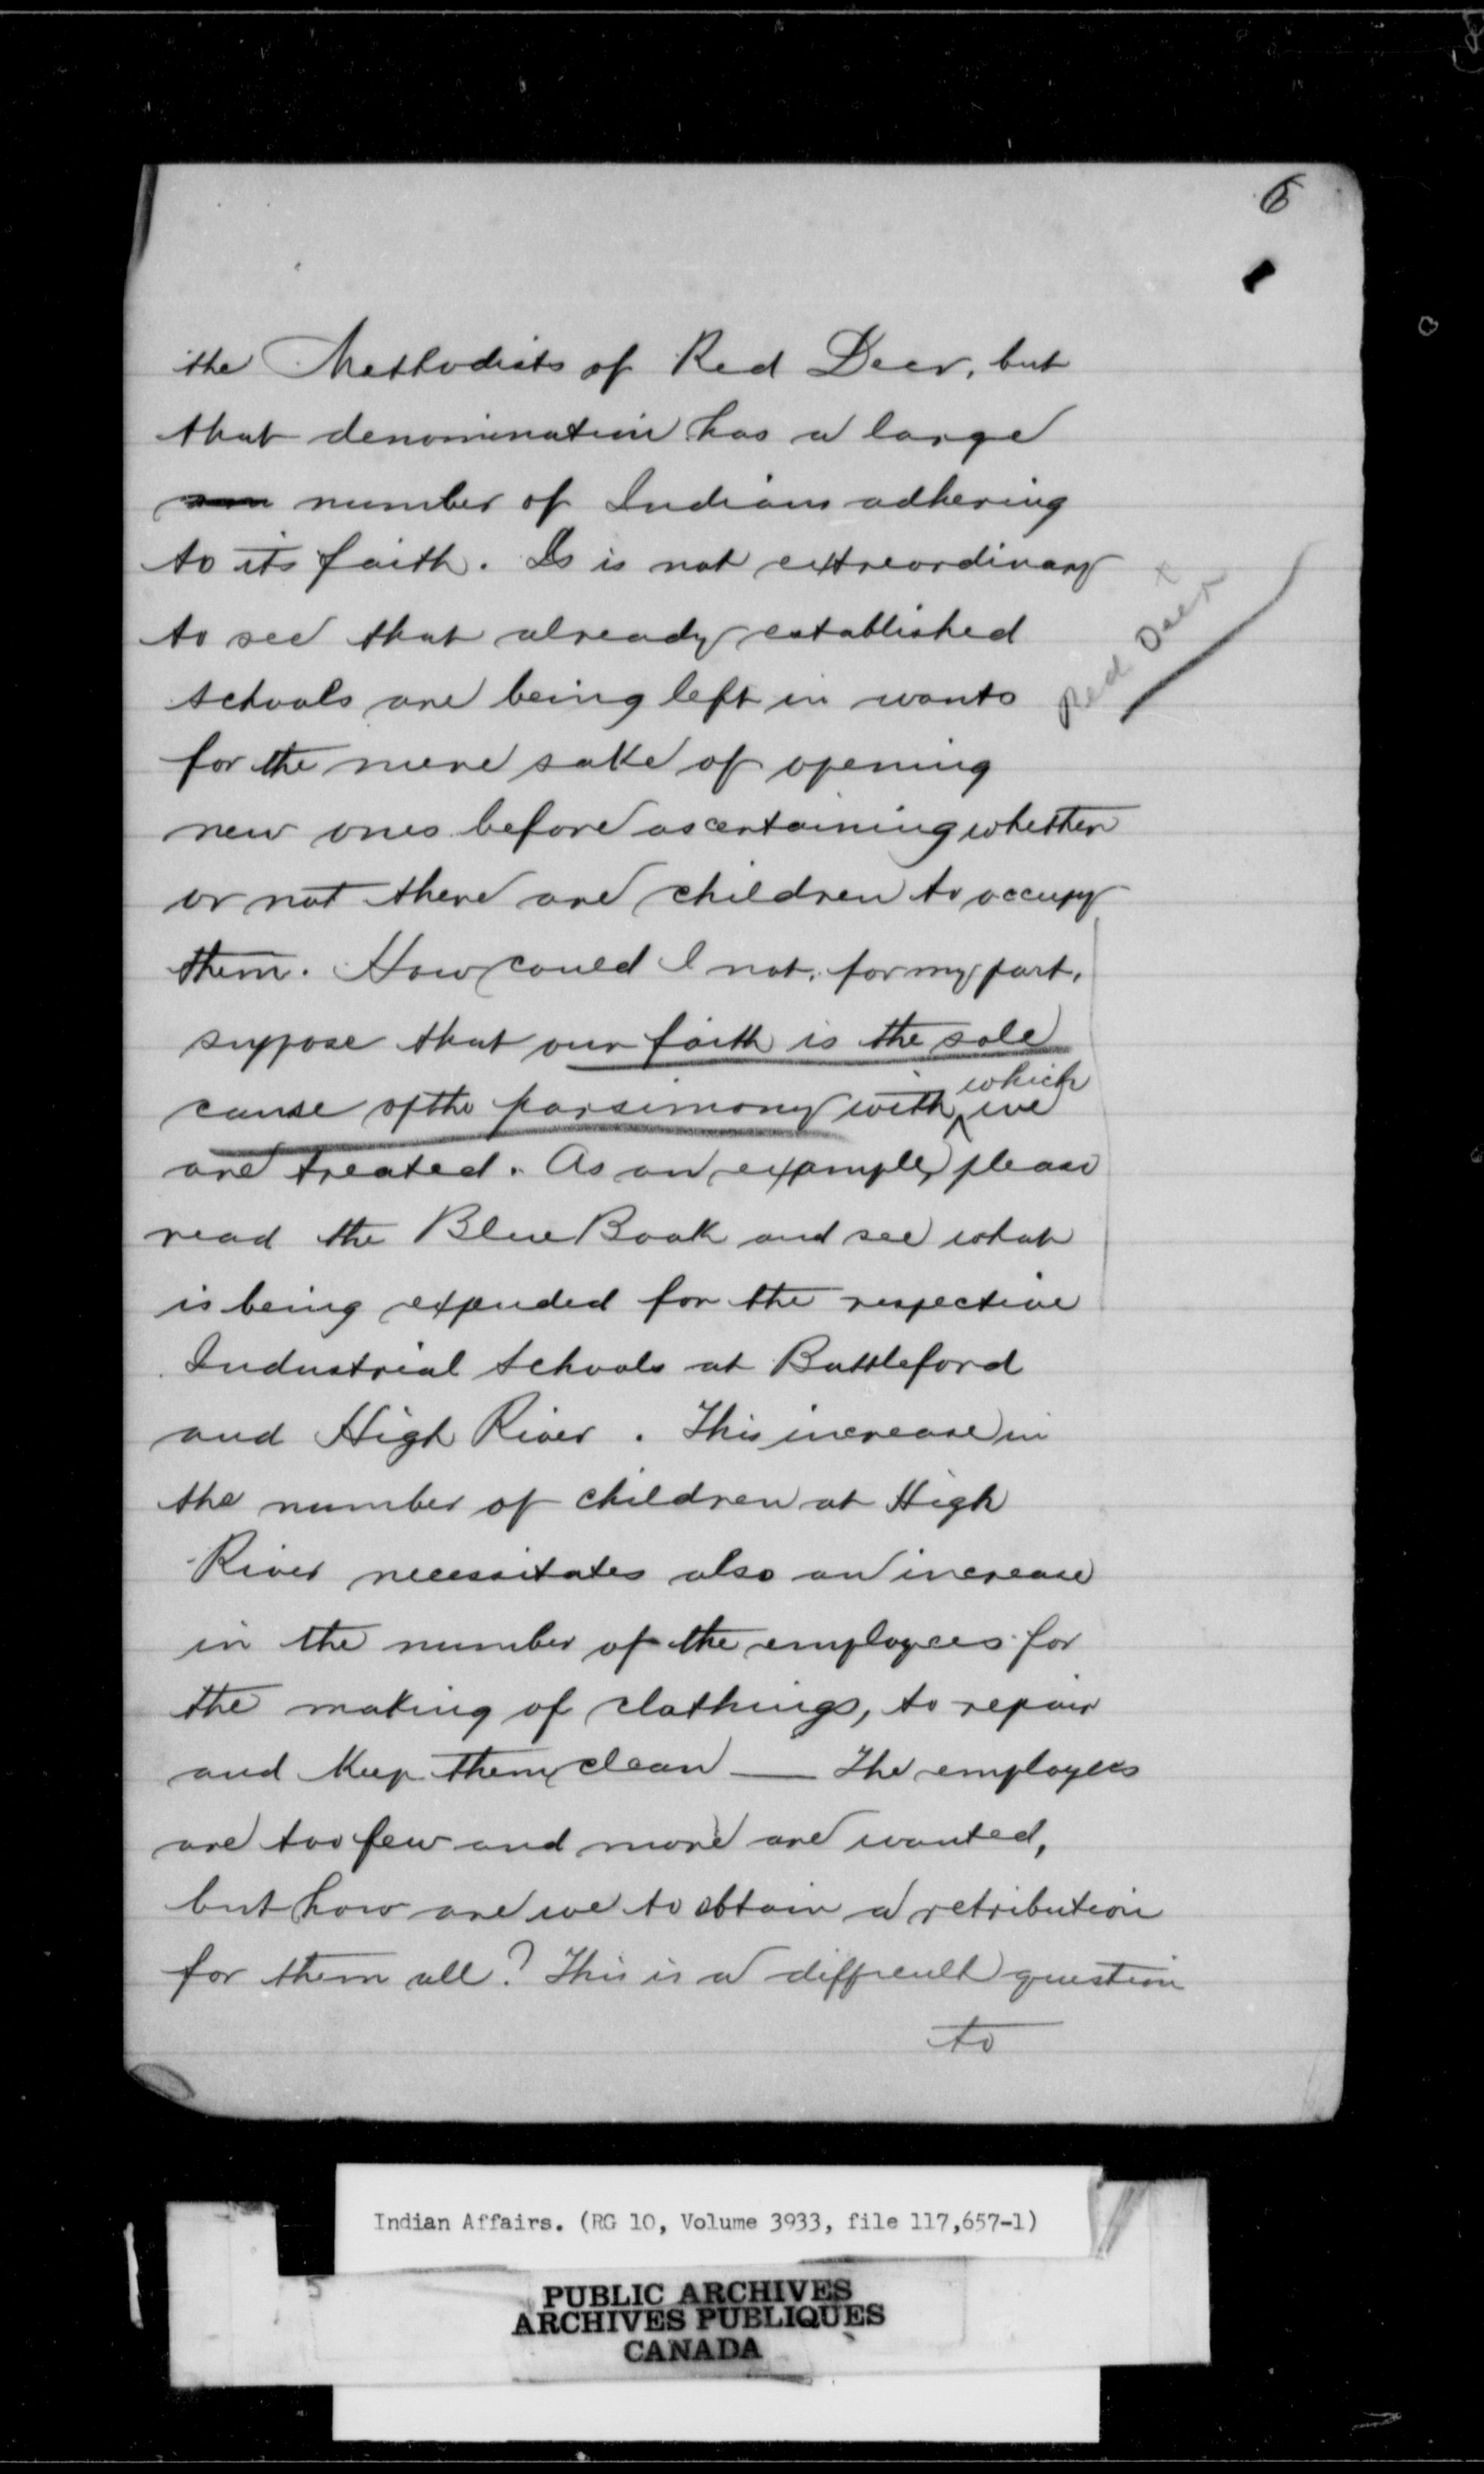 6
the Methodists of Red Deer, but
that denomination has a large
number of Indians adhering
to its faith. Is is not extreordinary
to see that already established
schools are being left in wants
for the mere sake of opening
new ones before ascertaining whether
or not there are children to occupy
them. How could I not, for my part,
suppose that our faith is the sole
cause of the parsimony with which we
are treated. As an example, please
read the Blue Book and see what
is being expended for the respective
Industrial schools at Battleford
and High River. This increase in
the number of children at High
River necessitates also an increase
in the number of the employees for
the making of clothings, to repair
and keep them clean — The employees
are too few and more are wanted,
but how are we to obtain a retribution
for them all? This is a difficult question
to
Red Deer
Indian Affairs. (RG 10, Volume 3933, file 117,657-1)
PUBLIC ARCHIVES
ARCHIVES PUBLIQUES
CANADA